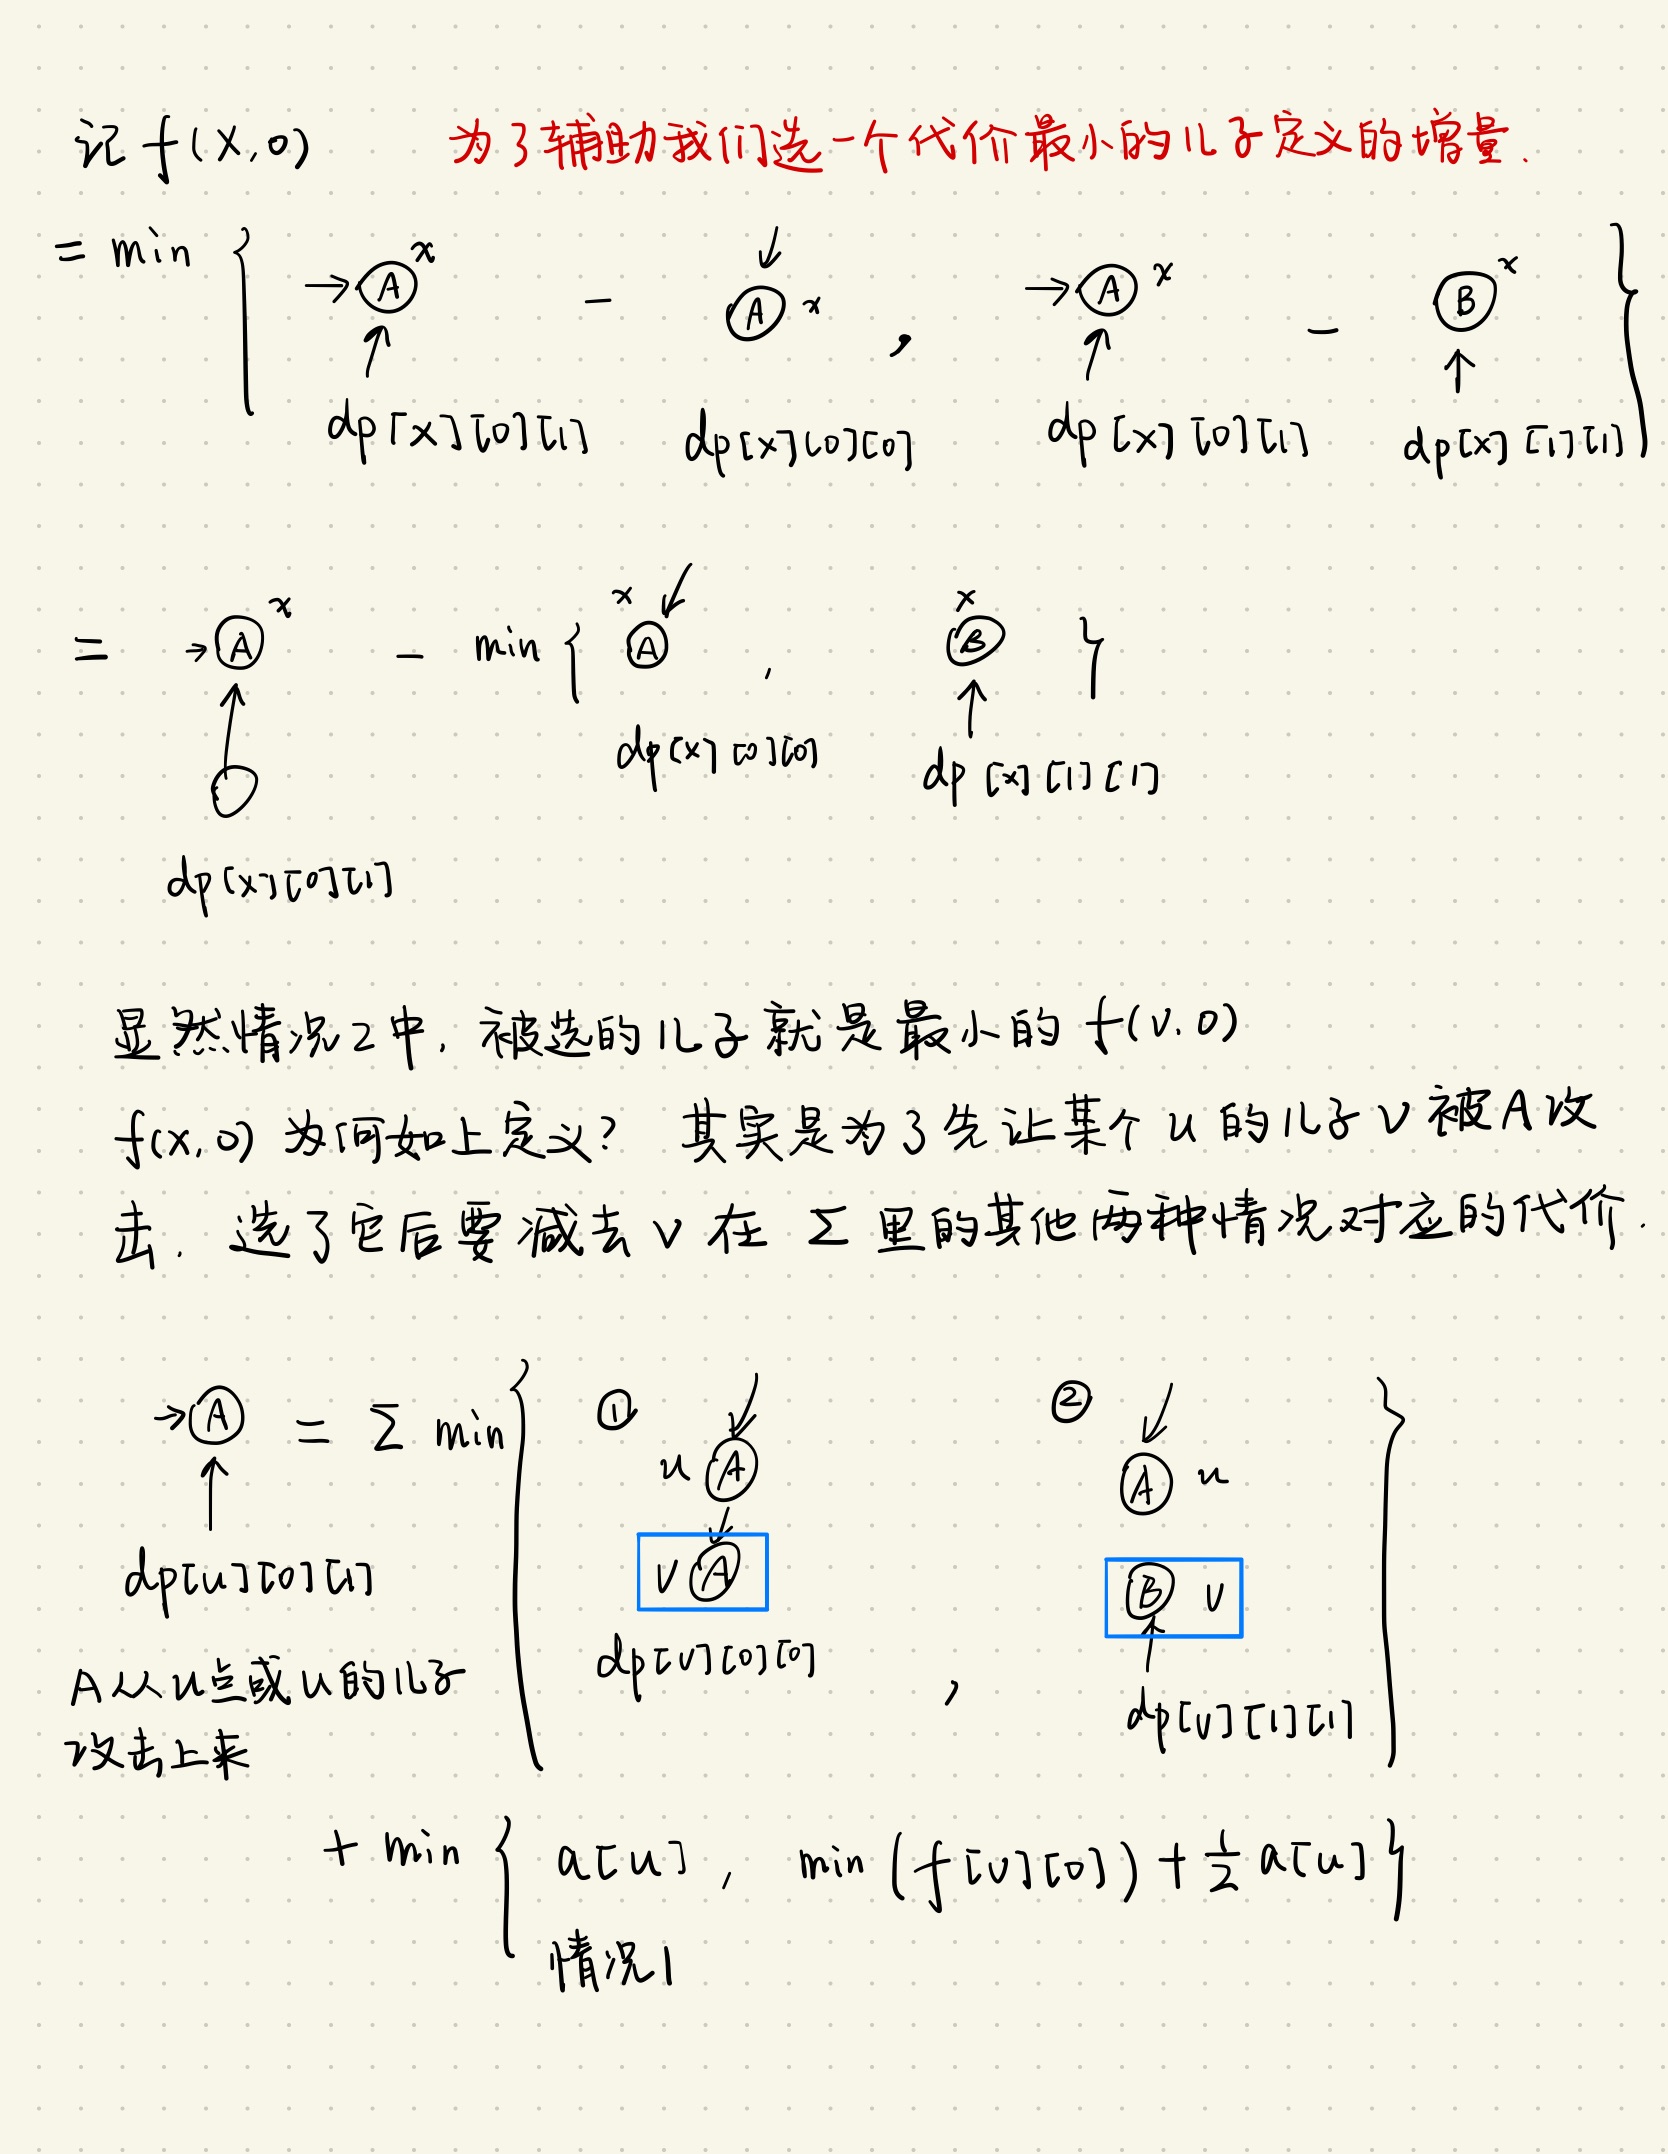 记 f(x,0) 为了辅助我们选一个代价最小的儿子定义的增量.
= min { → A x - A x , → A x - B x }
dp[x][0][1] dp[x][0][0] dp[x][0][1] dp[x][1][1]
= → A x - min { x A , x B }
dp[x][0][0] dp[x][1][1]
dp[x][0][1]
显然情况2中, 被选的儿子就是最小的 f(v.0)
f(x,0) 为何如上定义? 其实是为了先让某个 u 的儿子 v 被A攻
击. 选了它后要减去 v 在 Σ 里的其他两种情况对应的代价.
→ A = Σ min { ① u A ② A u }
v A B v
dp[u][0][1] dp[v][0][0] , dp[v][1][1]
A从u点或u的儿子
攻击上来
+ min { a[u] , min (f[v][0]) + 1/2 a[u] }
情况1